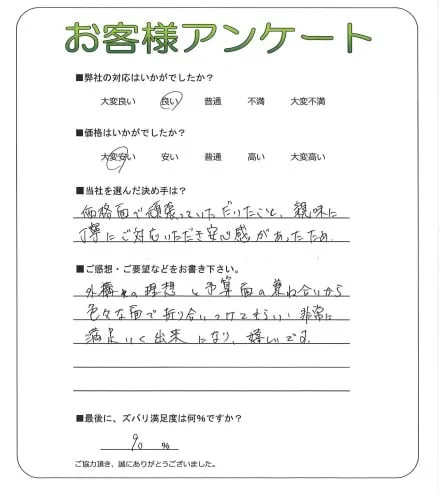 お客様アンケート
■弊社の対応はいかがでしたか?
大変良い 良い 普通 不満 大変不満
■価格はいかがでしたか?
大変安い 安い 普通 高い 大変高い
■当社を選んだ決め手は?
価格面で頑張っていただいたこと、親味に
丁寧にご対応いただき安心感があったため。
■ご感想・ご要望などをお書き下さい。
外構の理想と予算面の兼ね合いから
色々な面で折り合いつけてもらい非常に
満足いく出来になり、嬉しいです。
■最後に、ズバリ満足度は何%ですか?
90 %
ご協力頂き、誠にありがとうございました。